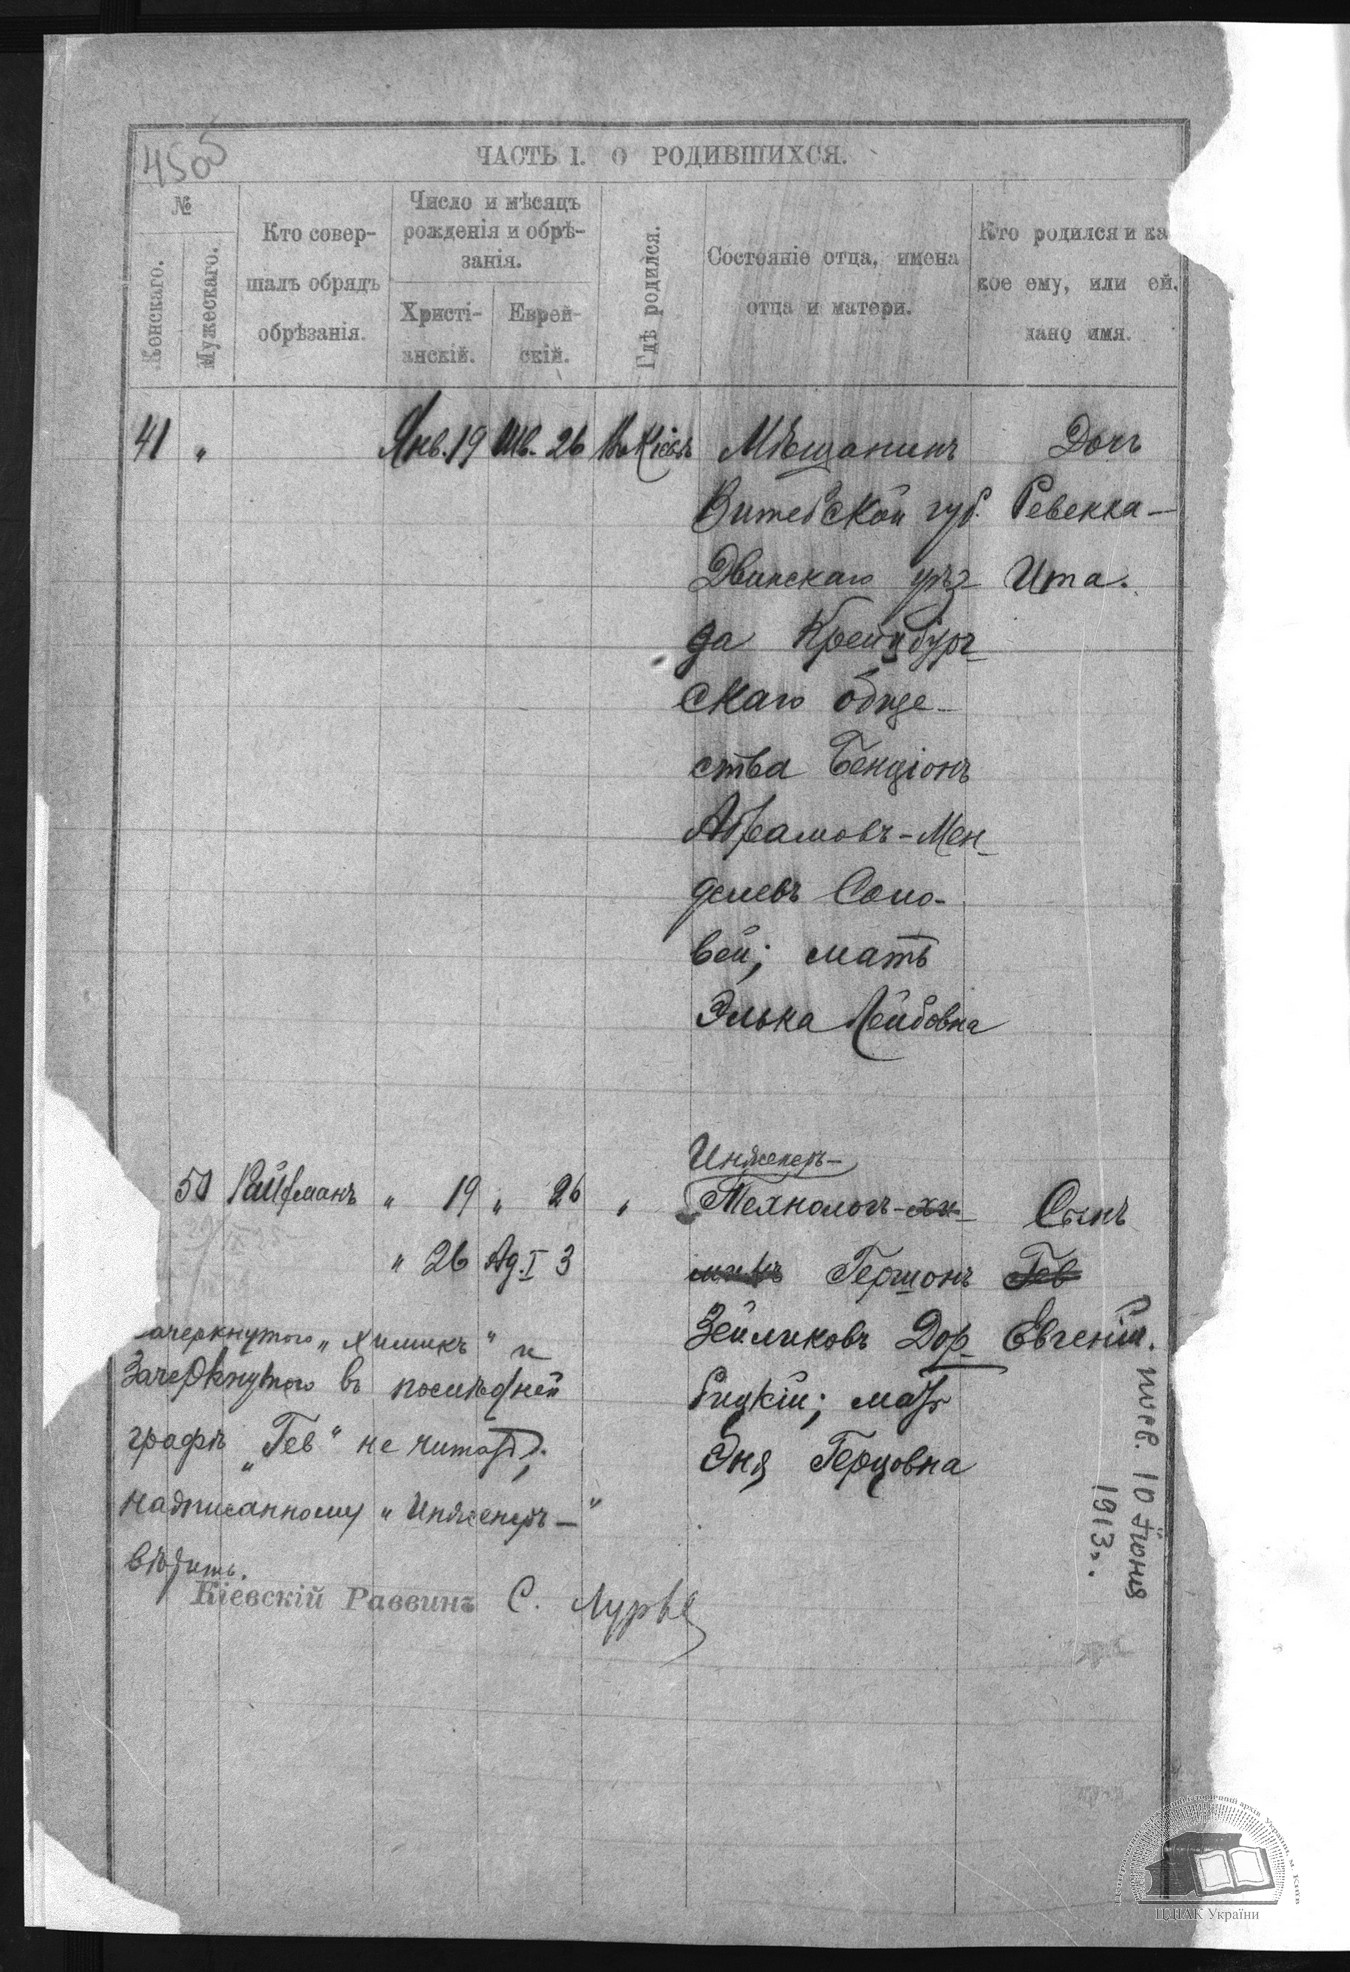 4505
ЧАСТЬ I. О РОДИВШИХСЯ.
№
Женскаго.
Мужескаго.
Кто совер-
шалъ обрядъ
обрѣзанія.
Число и мѣсяцъ
рожденія и обрѣ-
занія.
Христі-
анскій.
Еврей-
скій.
Гдѣ родился.
Состояніе отца, имена
отца и матери.
Кто родился и ка
кое ему, или ей,
дано имя.
41 " Янв. 19 Шв. 26 Въ Кіевѣ Мѣщанинъ Дочь
Витебской губ. Ревекка-
Двинскаго уѣз- Ита.
да Крейцбург-
скаго обще-
ства Бенціонъ
Абрамовъ-Мен-
делевъ Соло-
вей; мать
Элька Лейбовна
Инженеръ-
50 Райфманъ " 19 " 26 " Технологъ-хи- Сынъ
" 26 Ад. I 3 микъ Гершонъ Гев
Зеликовъ Дор- Евгеній.
рицкій; мать
Эня Герцовна
зачеркнутого „химикъ" и
зачеркнутого въ послѣдней
графѣ „Гев" не читать,
надписанному „Инженеръ-"
вѣрить.
Кіевскій Раввинъ С. Лурье
10 Іюня
1913г.
ЦДІАК України